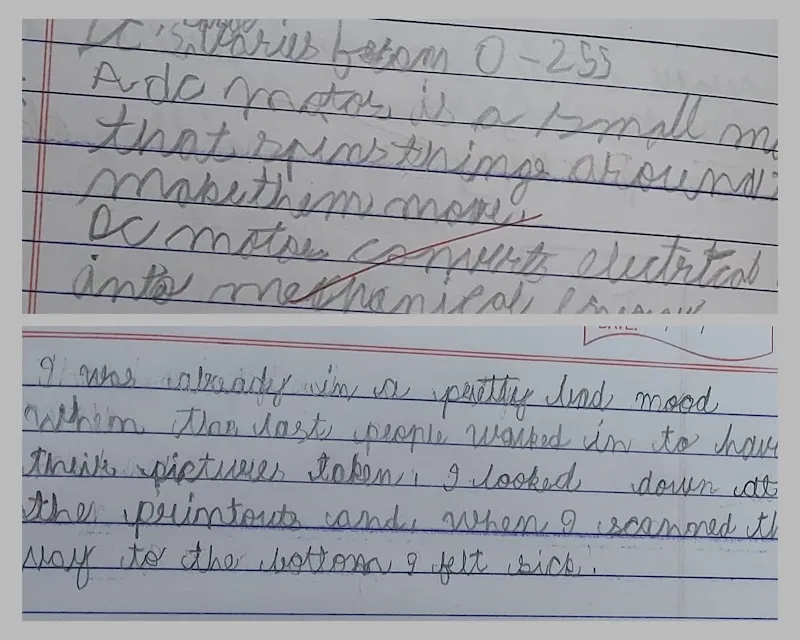 DC's, varies from 0-255
A dc motor is a small
that spins things around
make them move.
DC motor converts electrical
into mechanical energy
DATE: / /
I was already in a pretty bad mood
whim the last people walked in to have
their pictures taken. I looked down at
the printouts and, when I scanned th
way to the bottom I felt sick.